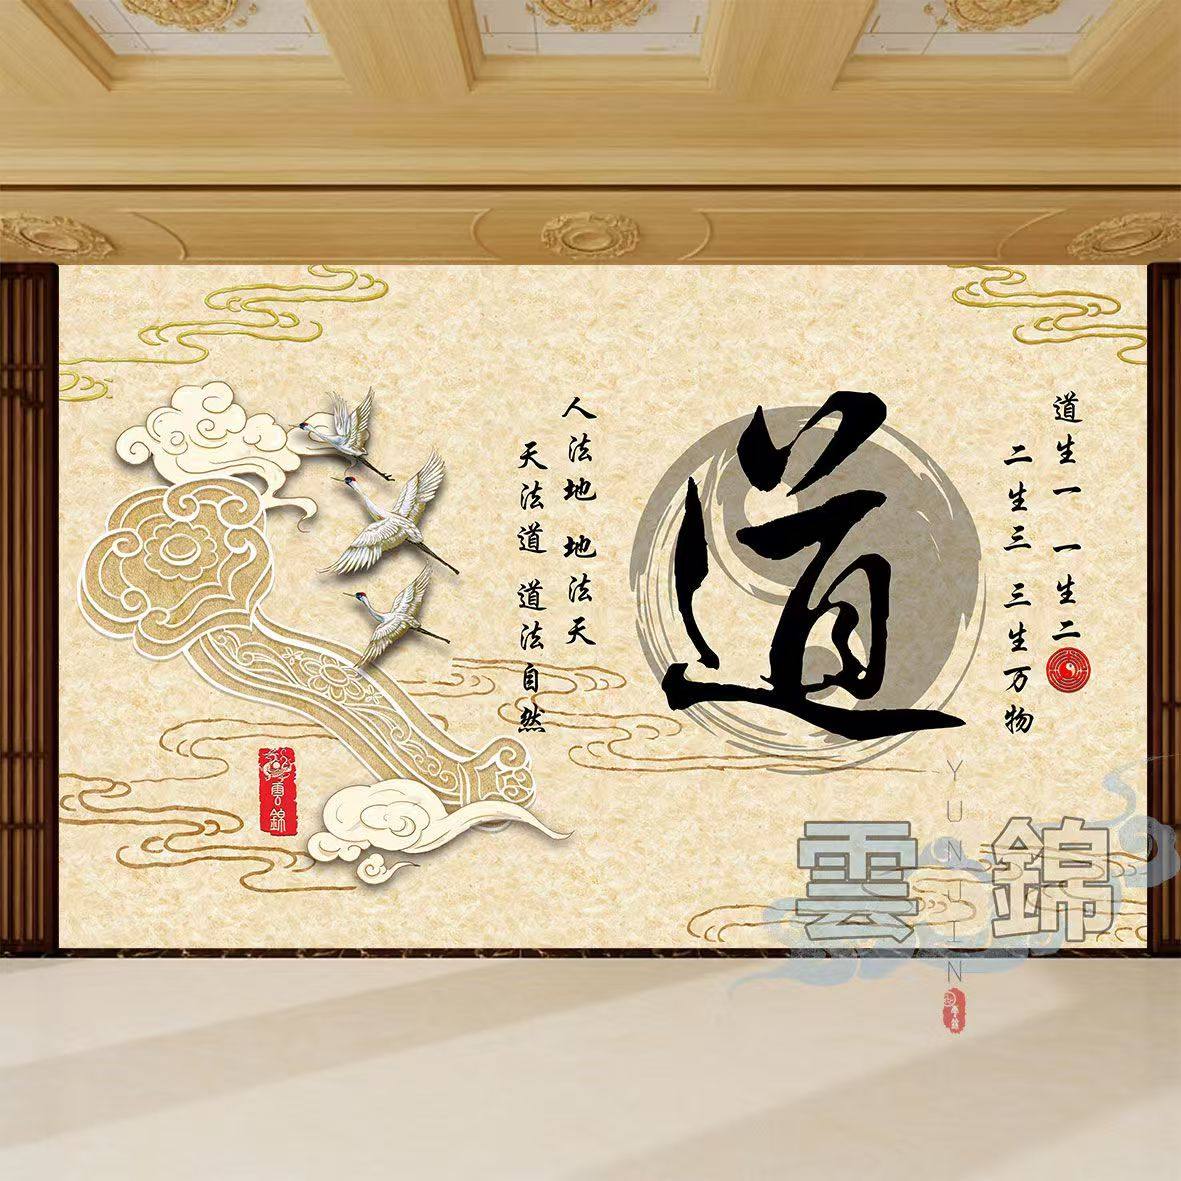 道生一 一生二
二生三 三生万物
道
人法地 地法天
天法道 道法自然
雲錦
雲錦
YUNJIN